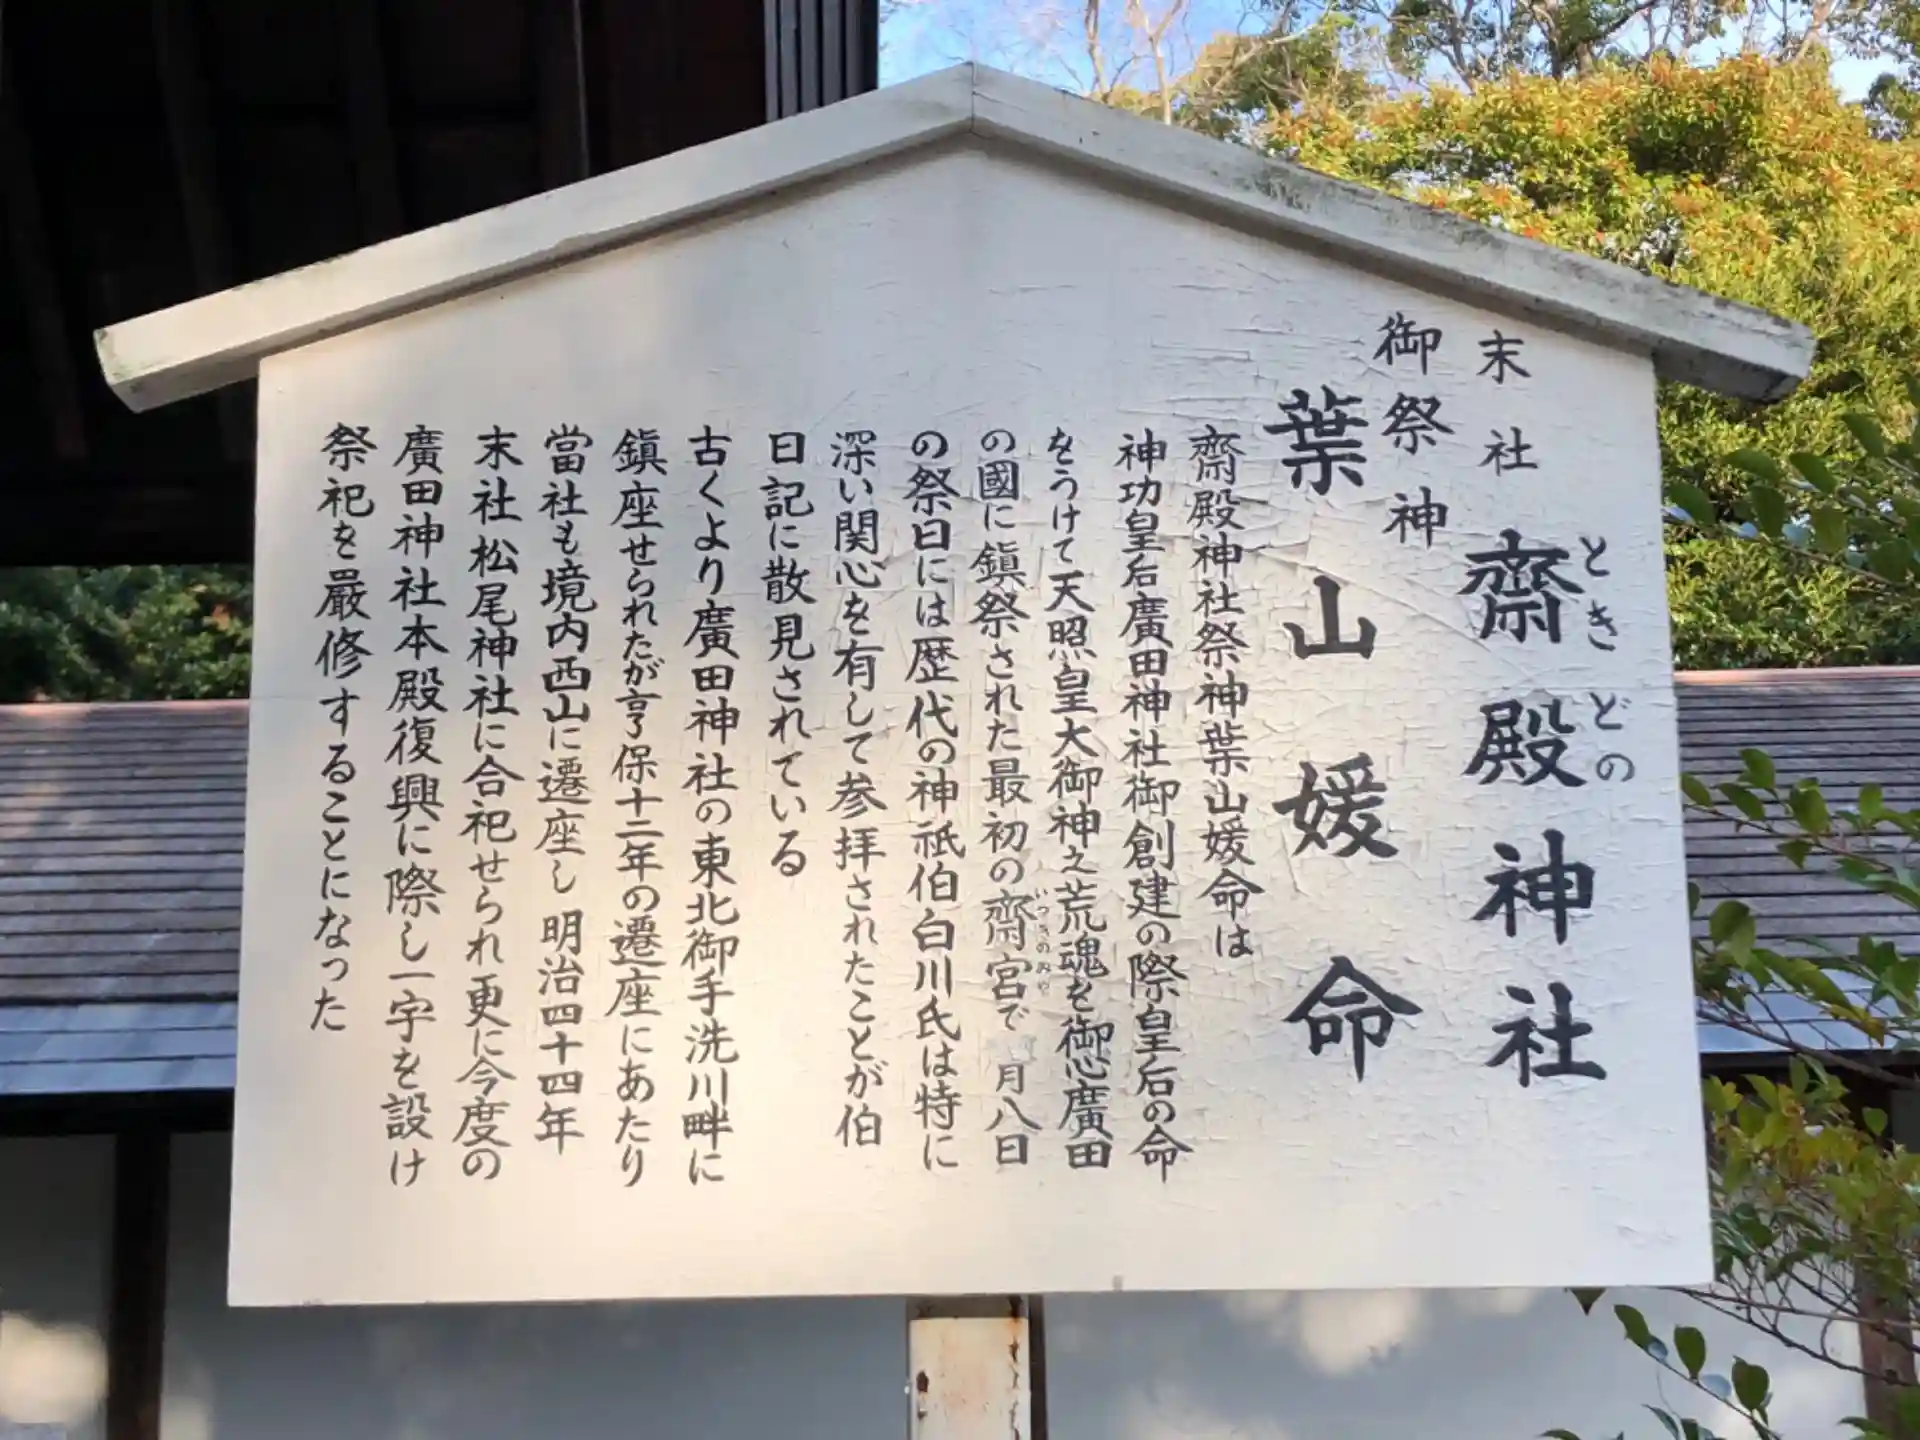 末社 齋殿神社
ときどの
御祭神
葉山媛命
齋殿神社祭神葉山媛命は
神功皇后廣田神社御創建の際皇后の命
をうけて天照皇大御神之荒魂を御心廣田
の國に鎮祭された最初の齋宮で 月八日
いつきのみや
の祭日には歴代の神祇伯白川氏は特に
深い関心を有して参拝されたことが伯
日記に散見されている
古くより廣田神社の東北御手洗川畔に
鎮座せられたが享保十二年の遷座にあたり
當社も境内西山に遷座し明治四十四年
末社松尾神社に合祀せられ更に今度の
廣田神社本殿復興に際し一宇を設け
祭祀を厳修することになった